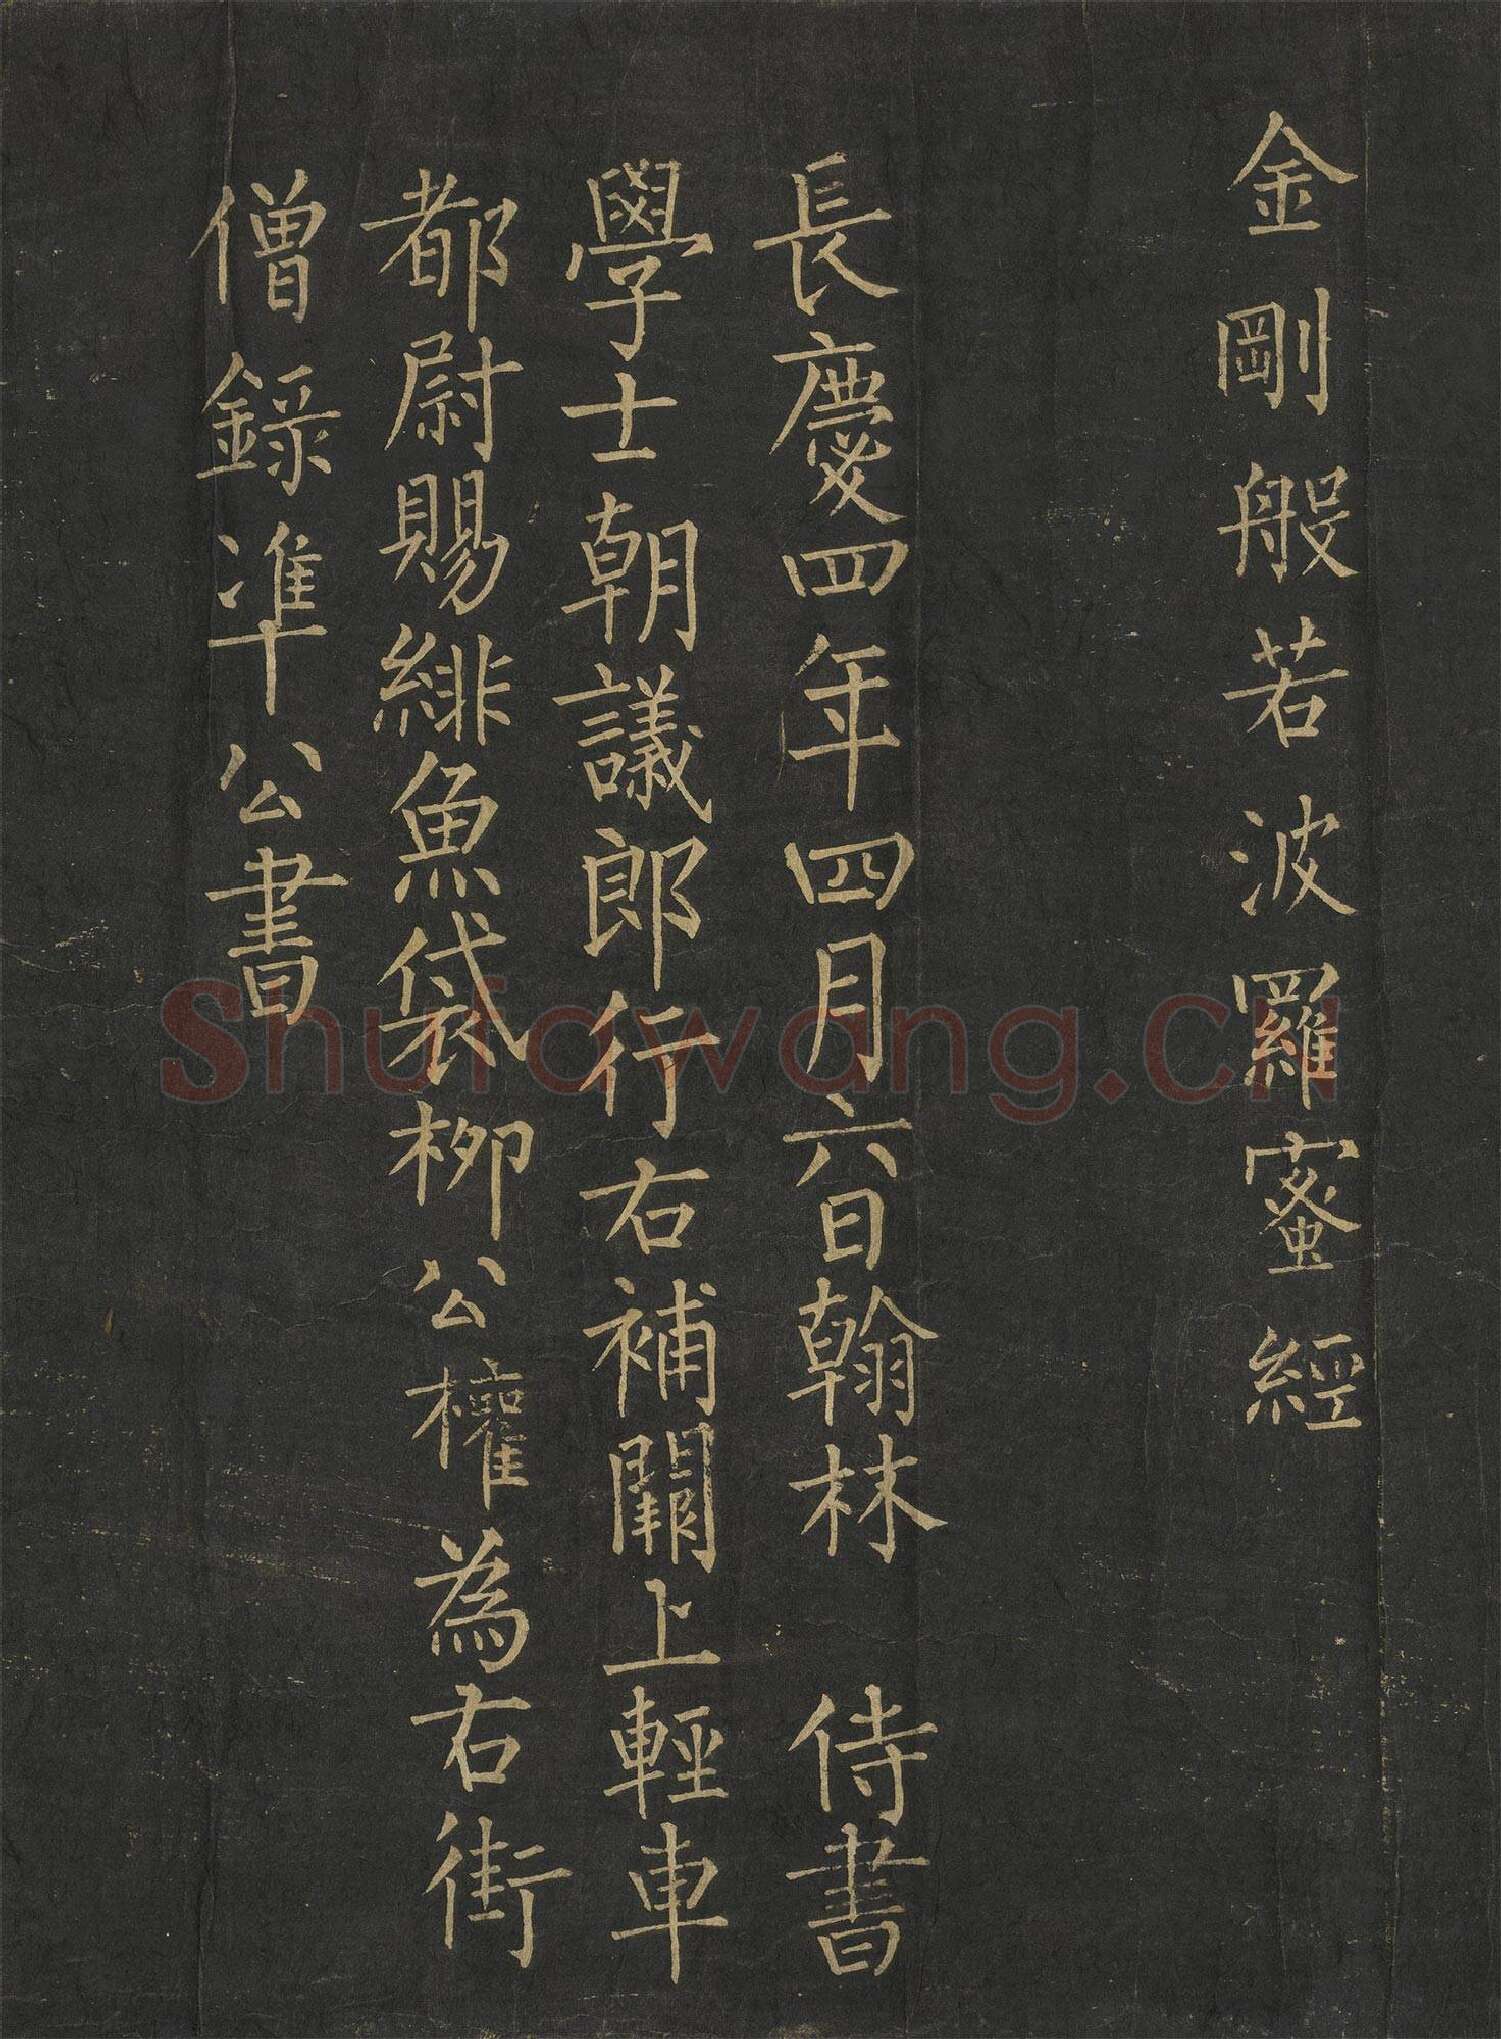 金剛般若波羅蜜經
長慶四年四月六日翰林　侍書
學士朝議郎行右補闕上輕車
都尉賜緋魚袋柳公權為右街
僧錄準公書
Shufawang.CN